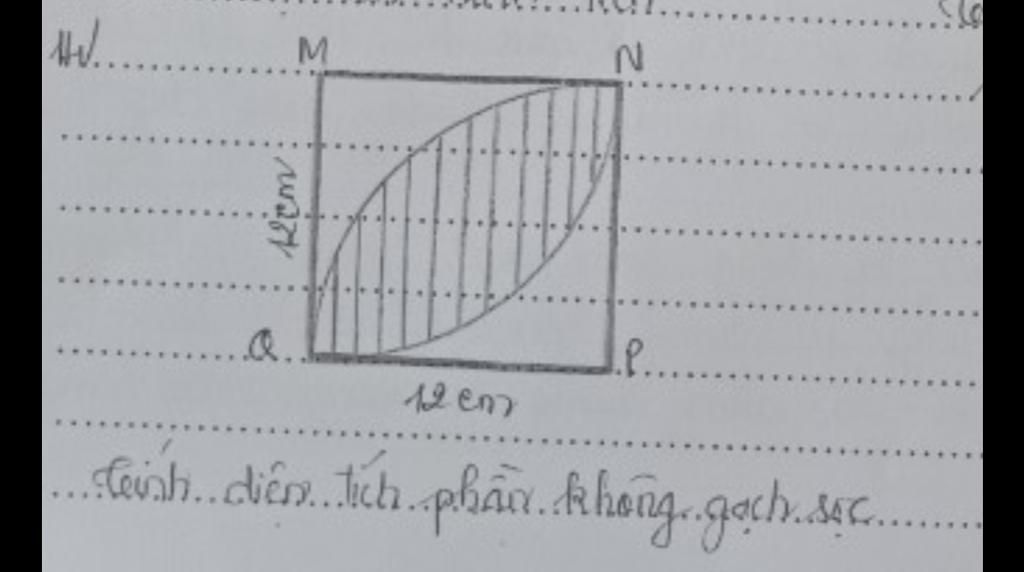 HV
M
N
12cm
Q
P
12cm
tính diện tích phần không gạch sọc